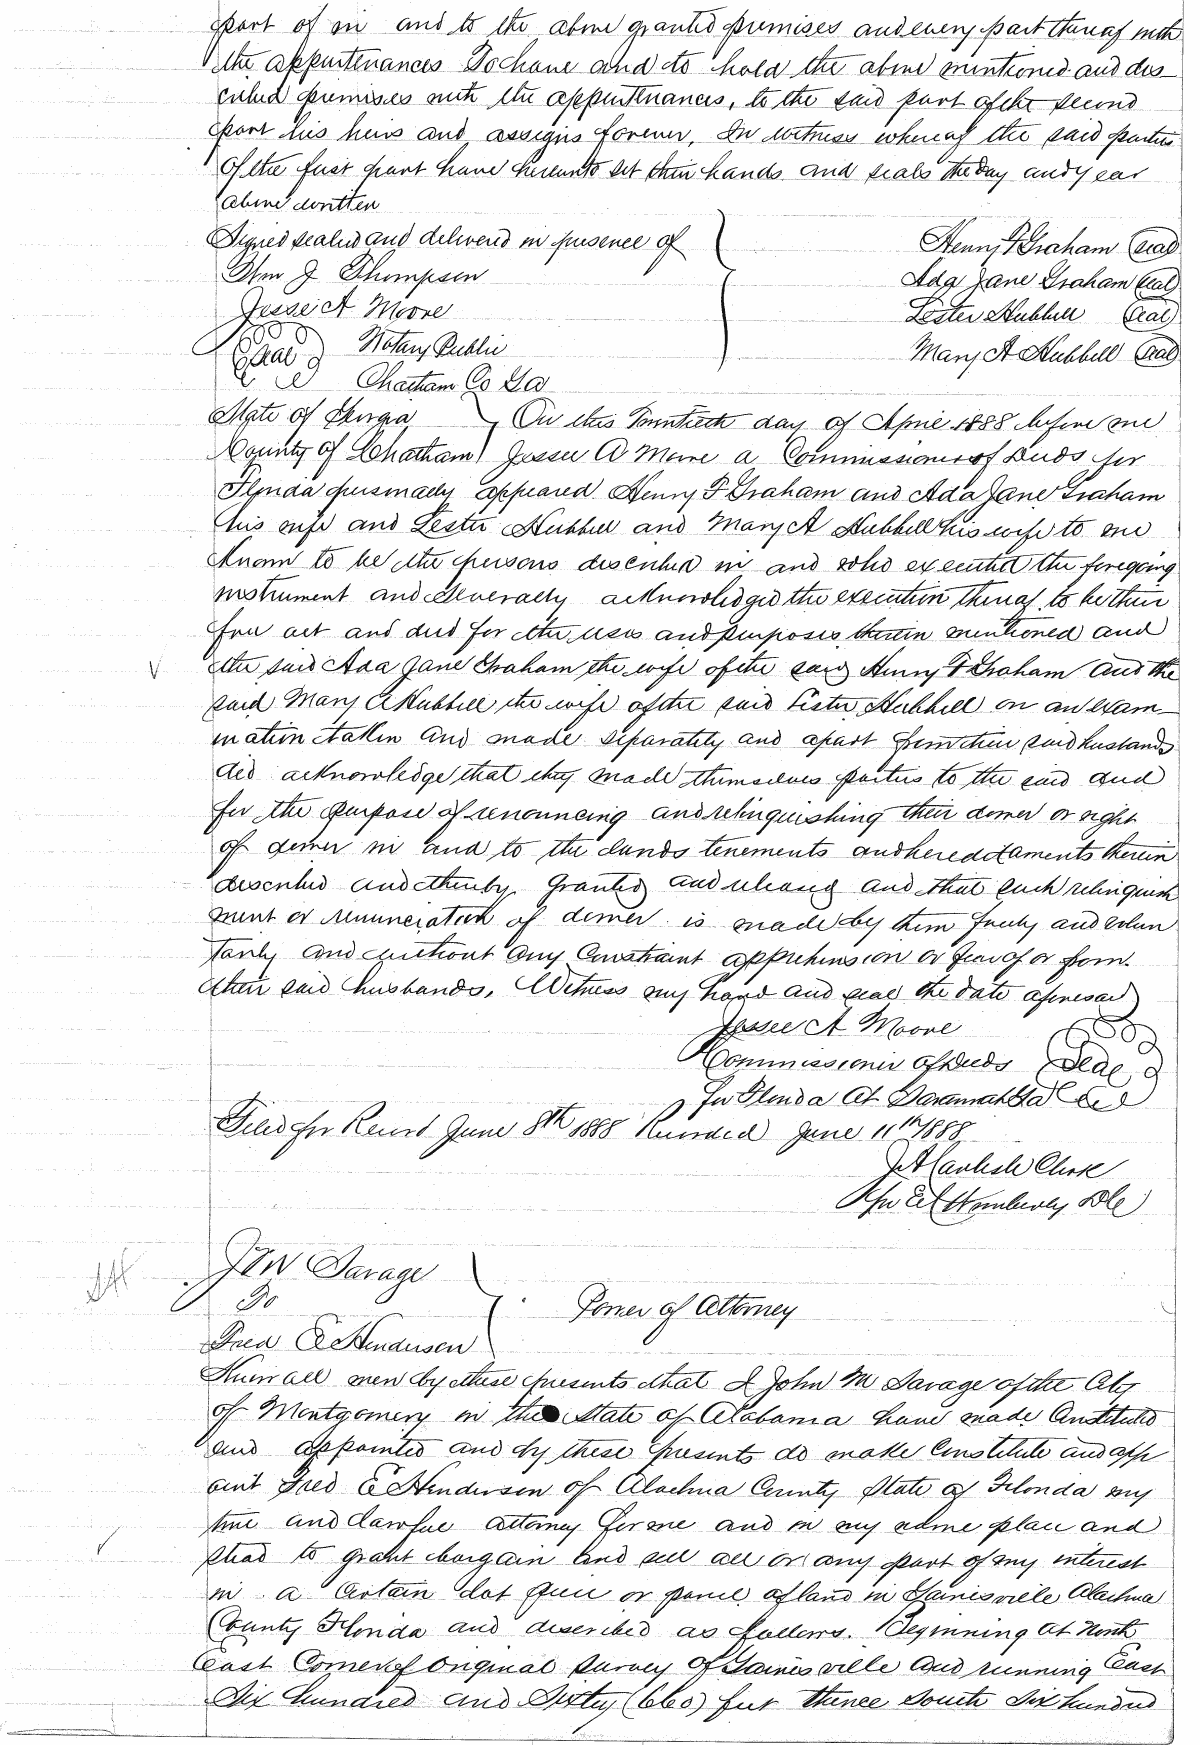 part of in and to the above granted premises and every part thereof with
the appurtenances To have and to hold the above mentioned and des
cribed premises with the appurtenances, to the said part of the second
part his heirs and assigns forever. In witness whereof the said parties
of the first part have hereunto set their hands and seals the day and year
above written
Signed sealed and delivered in presence of
Henry F Graham (Seal)
Wm J Thompson
Ada Jane Graham (Seal)
Jesse A Moore
Lester Hubbell (Seal)
(Seal) Notary Public
Mary A Hubbell (Seal)
Chatham Co Ga
State of Georgia On this Twentieth day of April 1888 before me
County of Chatham Jesse A Moore a Commissioner of Deeds for
Florida personally appeared Henry F Graham and Ada Jane Graham
his wife and Lester Hubbell and Mary A Hubbell his wife to me
known to be the persons described in and who executed the foregoing
instrument and severally acknowledged the execution thereof to be their
free act and deed for the uses and purposes therein mentioned and
the said Ada Jane Graham the wife of the said Henry F Graham and the
said Mary A Hubbell the wife of the said Lester Hubbell on an exam
ination taken and made separately and apart from their said husbands
did acknowledge that they made themselves parties to the said deed
for the purpose of renouncing and relinquishing their dower or right
of dower in and to the lands tenements and hereditaments therein
described and thereby granted and released and that such relinquish
ment or renunciation of dower is made by them freely and volun
tarily and without any Constraint apprehension or fear of or from
their said husbands. Witness my hand and seal the date aforesaid
Jesse A Moore
Commissioner of Deeds (Seal)
for Florida At Savannah Ga
Filed for Record June 8th 1888 Recorded June 11th 1888
Clerk
DC
J M Savage
To Power of Attorney
Fred E Henderson
Know all men by these presents that I John M Savage of the City
of Montgomery in the State of Alabama have made Constituted
and appointed and by these presents do make Constitute and app
oint Fred E Henderson of Alachua County State of Florida my
true and lawful attorney for me and in my name place and
stead to grant bargain and sell all or any part of my interest
in a certain lot piece or parcel of land in Gainesville Alachua
County Florida and described as follows. Beginning at North
East Corner of Original Survey of Gainesville and running East
Six hundred and Sixty (660) feet thence South Six hundred